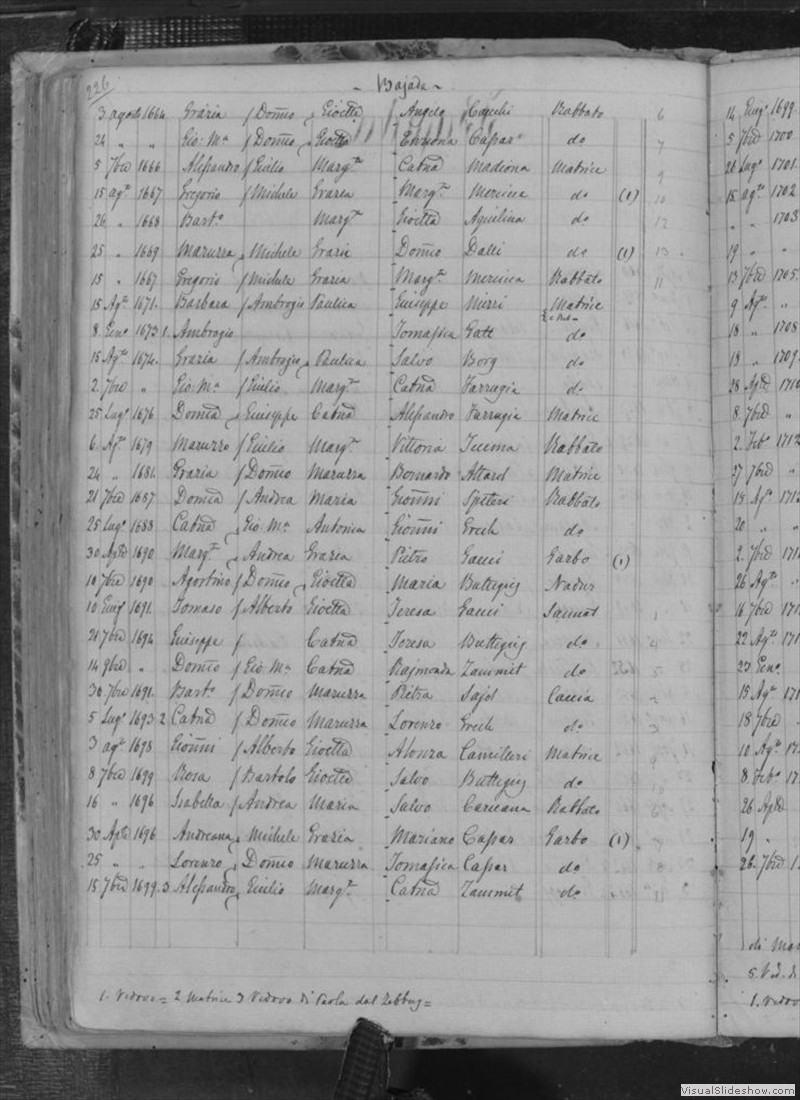 226
~ Bajada ~
3 agosto 1664 Grazia f Domco Gioetta Angelo Cuschi Rabbato 6
24 „ „ Gio: Ma f Domco Gioetta Caspar do 7
5 7bre 1666 Alessandro f Giulio Margta Catna Madiona Matrice 9
15 agto 1667 Gregorio f Michele Grazia Margta Mercieca do (1) 10
26 „ 1668 Barto Margta Gioetta Aquilina do 12
25 „ 1669 Maruzza Michele Grazia Domco Dalli do (1) 13
15 „ 1667 Gregorio f Michele Grazia Margta Mercieca Rabbato 11
15 Agto 1671. Barbara f Ambrogio Paulica Giuseppe Mizzi Matrice
8 Geno 1673 1. Ambrogio Tomasica Gatt do
15 Agto 1674. Grazia f Ambrogio Paulica Salvo Borg do
2. 7bre „ Gio: Ma f Giulio Margta Catna Farrugia do
25 Lugo 1676 Domca Giuseppe Catna Alessandro Farrugia Matrice
6 Agto 1679 Maruzzo f Giulio Margta Vittoria Rabbato
24 „ 1681. Grazia f Domco Maruzza Bernardo Attard Matrice
21 7bre 1687 Domca f Andrea Maria Gionni Spiteri Rabbato
25 Lugo 1688 Catna Gio: Ma Antonica Gionni Grech do
30 Aple 1690 Margta Andrea Grazia Pietro Gauci Garbo (1)
10 7bre 1690 Agostino f Domco Gioetta Maria Buttigieg Nadur
10 Giugo 1691. Tomaso f Alberto Gioetta Teresa Gauci Sannat 1
21 7bre 1694 Giuseppe f Catna Teresa Buttigieg do 4
14 9bre „ Domco f Gio: Ma Catna Rajmonda Zammit do 5
30 7bre 1691. Barto f Domco Maruzza Pietra Sajd Caccia 2
5 Lugo 1693 2 Catna f Domco Maruzza Lorenzo Grech do 3
3 agto 1698 Gionni f Alberto Gioetta Alonza Camilleri Matrice 9
8 7bre 1699 Rosa f Bartolo Gioetta Salvo Buttigieg do 10
16 „ 1696 Isabella f Andrea Maria Salvo Caruana Rabbato
30 Aple 1696 Andreana Michele Grazia Mariano Caspar Garbo (1) 7
25 „ „ Lorenzo Domco Maruzza Tomasica Caspar do 8
15 7bre 1699. 3 Alessandro Giulio Margta Catna Zammit do 11
1. Vedovo = 2 Matrice 3 Vedovo di Paola dal Zebbug =
14 Giugo 1699
5 7bre 1700
26 Lugo 1701.
15 agto 1702
„ „ 1703
19 „ „
13 7bre 1705.
9 Agto „
18 „ 1708
18 „ 1709.
28 Aple 1710
8. 7bre „
2. Febo 1712
27 7bre „
20 „ „
26 Agto „
23 Geno
18 7bre
26 Aple
19 „
26. 7bre
5 Ved. di
1. Vedovo
VisualSlideshow.com